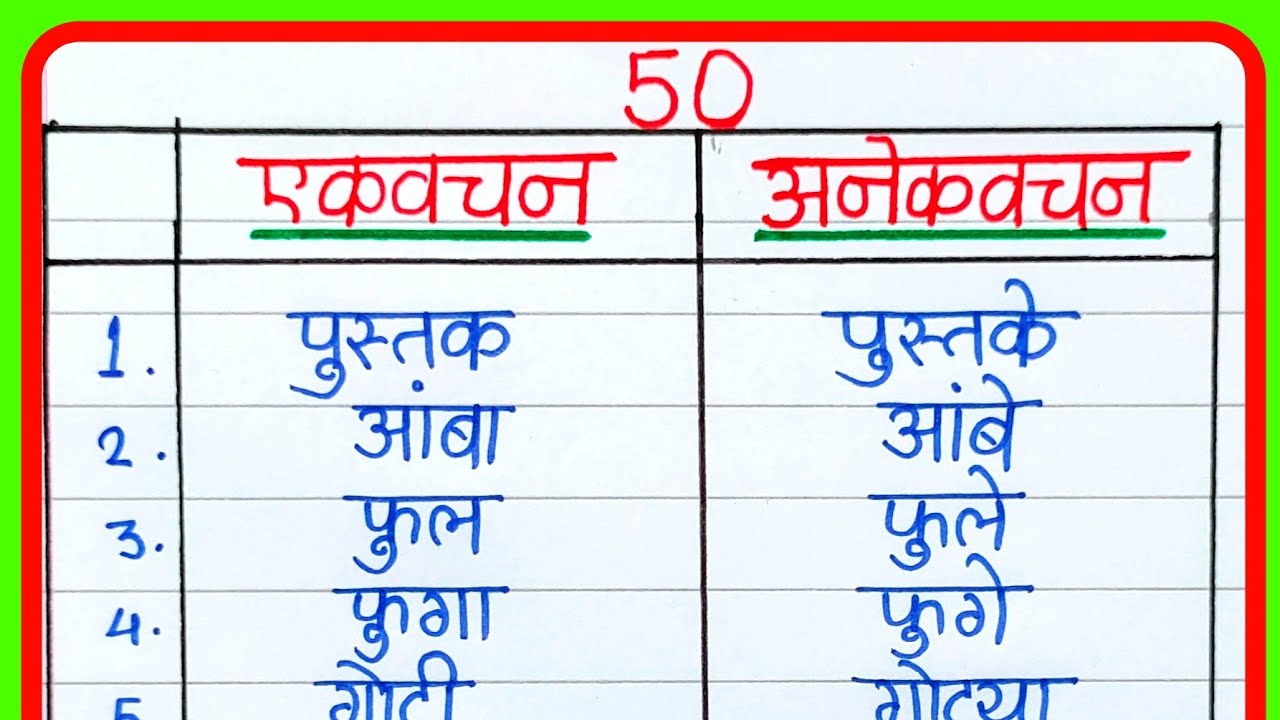 50
एकवचन अनेकवचन
1. पुस्तक पुस्तके
2. आंबा आंबे
3. फुल फुले
4. फुगा फुगे
5. गोटी गोट्या